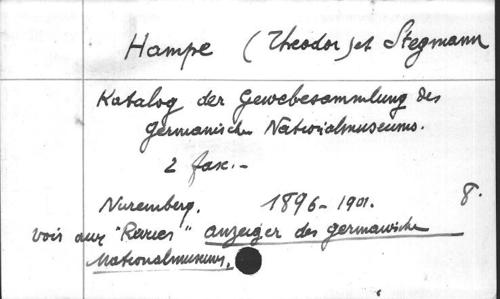 Hampe (Theodor) et Stegmann
Katalog der Gewebesammlung des
Germanischen Nationalmuseums.
2 fasc.-
Nuremberg. 1896-1901. 8.
voir aux "Revues" Anzeiger des germanischen
Nationalmuseums.